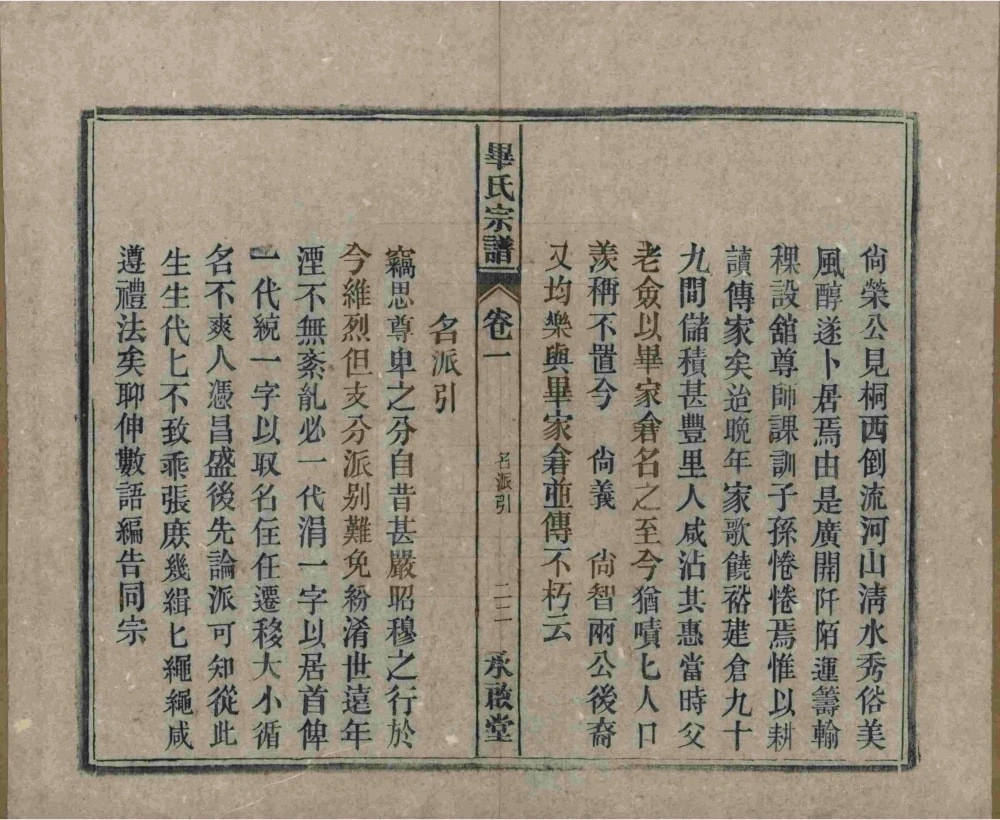 尙榮公見桐西倒流河山淸水秀俗美
風醇遂卜居焉由是廣開阡陌運籌輸
稞設舘尊師課訓子孫惓惓焉惟以耕
讀傳家矣迨晚年家歌饒裕建倉九十
九間儲積甚豐里人咸沾其惠當時父
老僉以畢家倉名之至今猶嘖匕人口
羨稱不置今 尙義 尙智兩公後裔
又均樂與畢家倉並傳不朽云
畢氏宗譜 卷一 名派引 二二 承啟堂
名派引
竊思尊卑之分自昔甚嚴昭穆之行於
今維烈但支分派别難免紛淆世遠年
湮不無紊亂必一代涓一字以居首俾
一代統一字以取名住任遷移大小循
名不爽人憑昌盛後先論派可知從此
生生代匕不致乖張庶幾緝匕繩繩咸
遵禮法矣聊伸數語編告同宗